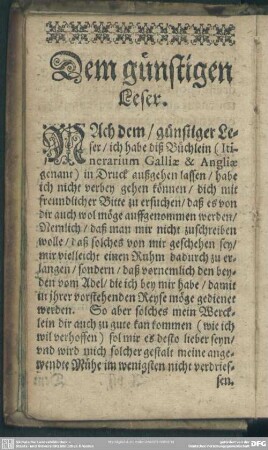 Dem günstigen
Leser.
NAch dem / günstiger Le-
ser / ich habe diß Büchlein (Iti-
nerarium Galliæ & Angliæ
genant) in Druck außgehen lassen / habe
ich nicht verbey gehen können / dich mit
freundlicher Bitte zu ersuchen / daß es von
dir auch wol möge auffgenommen werden /
Nemlich / daß man mir nicht zuschreiben
wolle / daß solches von mir geschehen sey /
mir vielleicht einen Ruhm dadurch zu er-
langen / sondern / daß vornemlich den bey-
den vom Adel / die ich bey mir habe / damit
in jhrer vorstehenden Reyse möge gedienet
werden. So aber solches mein Werck-
lein dir auch zu gute kan kommen (wie ich
wil verhoffen) sol mir es desto lieber seyn /
vnd wird mich solcher gestalt meine ange-
wendte Mühe im wenigsten nicht verdries-
sen.